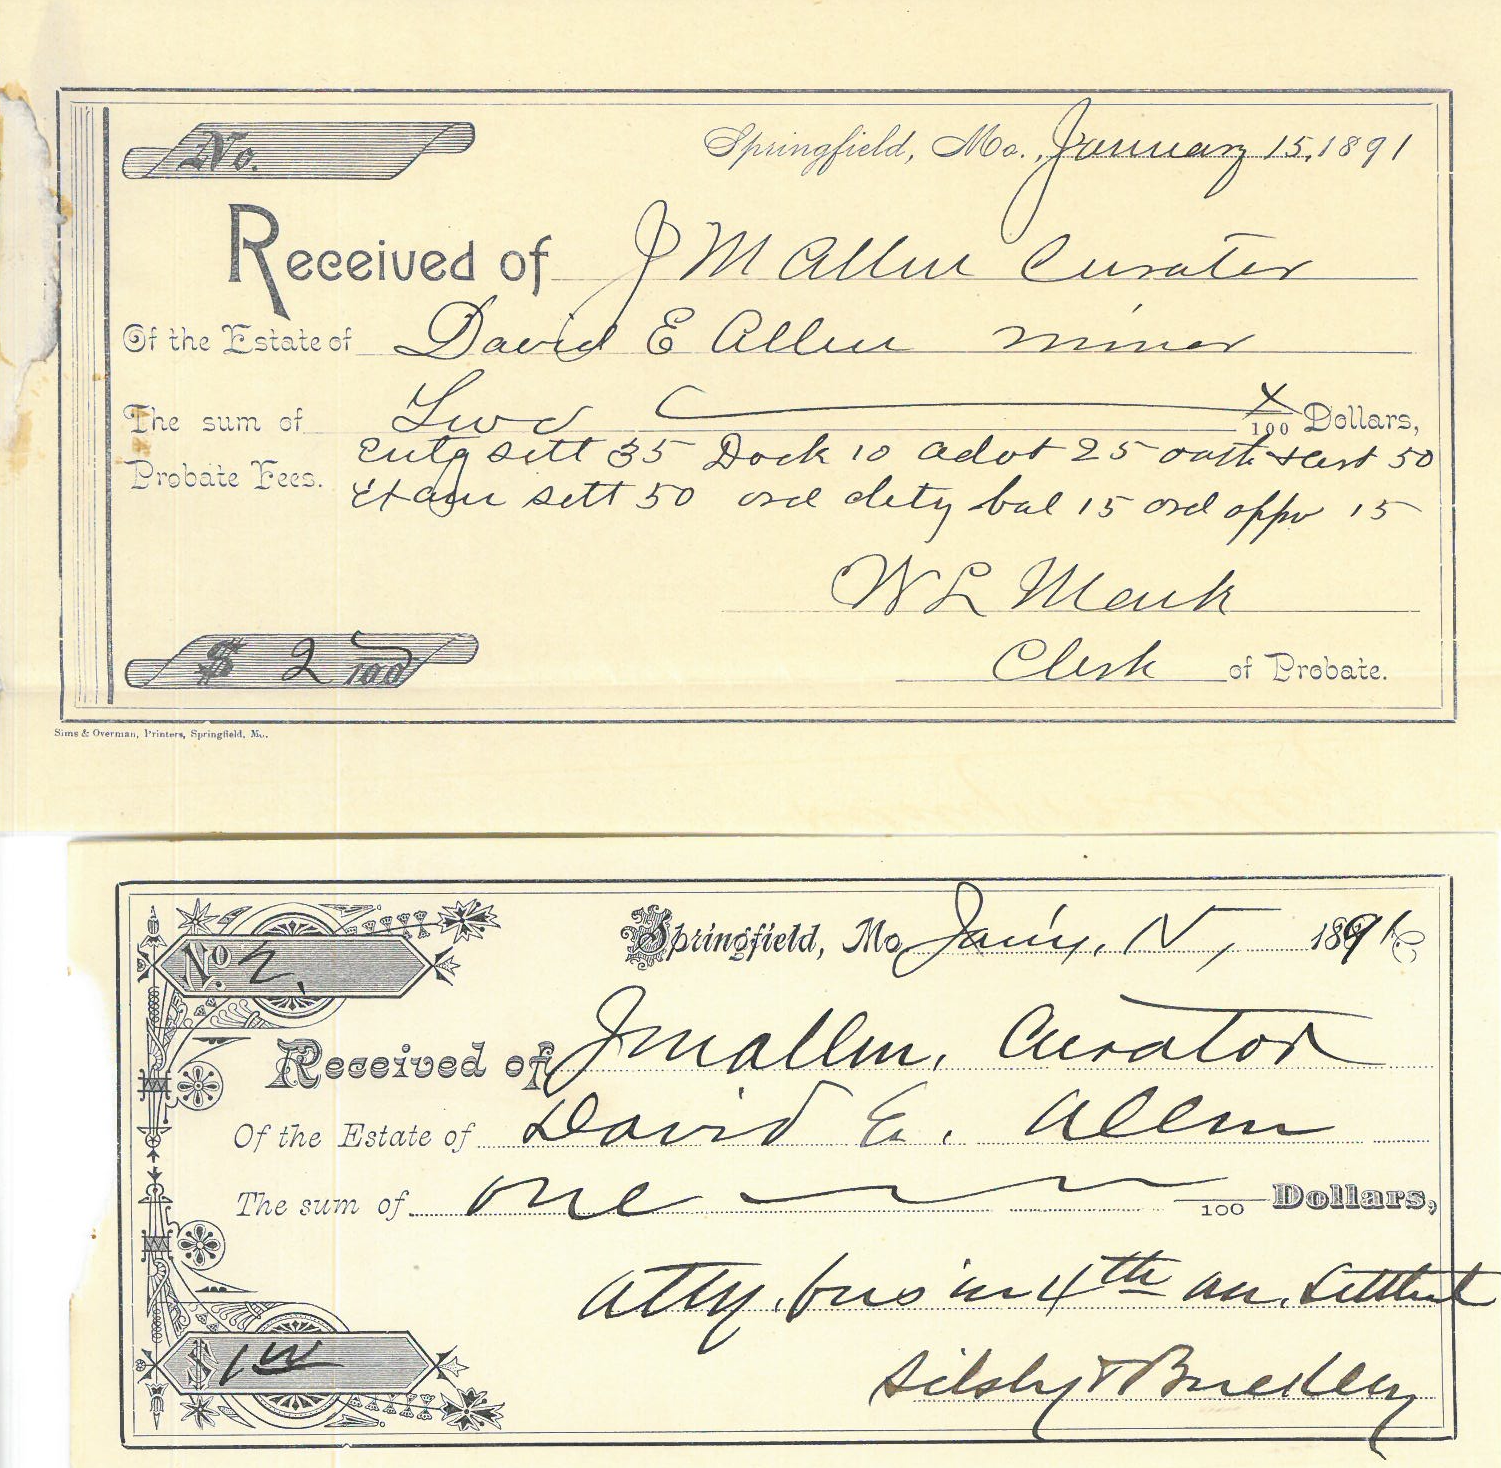 No.
Springfield, Mo., January 15, 1891
Received of J M Allen Curator
Of the Estate of David E Allen minor
The sum of Two x/100 Dollars,
Probate Fees. Entg sett 35 Dock 10 advt 25 oath & cert 50
Exam sett 50 ord detg bal 15 ord appv 15
W L Mark
$ 2 /100
Clerk of Probate.
Sims & Overman, Printers, Springfield, Mo.
No. 2.
Springfield, Mo, Jan'y, 1891
Received of J M Allen, Curator
Of the Estate of David E. Allen
The sum of one /100 Dollars,
atty. in 4th an. Settlmt
$1
Silsby &